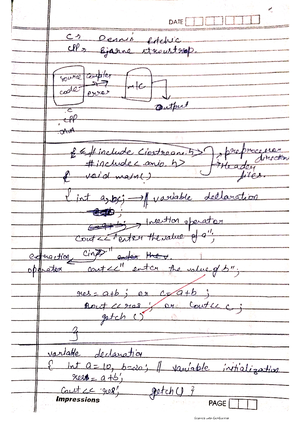 DATE
C → Dennis Ritchie
CPP → Bjarne stroustrop.
source compiler
code error
C
CPP
Output
{ #include <iostream.h> } preprocessor
#include <conio.h> Header
{ void main() files.
{ int a,b; → // variable declaration
→ Insertion operator
cout<<"enter the value of a";
extraction cin
operator cout<<"enter the value of b";
res = a+b; or c=a+b;
cout<<res; or cout<<c;
getch ()
}
variable declaration
{ int a=10, b=20; // variable initialization
res = a+b;
cout<< res; getch() }
Impressions
PAGE